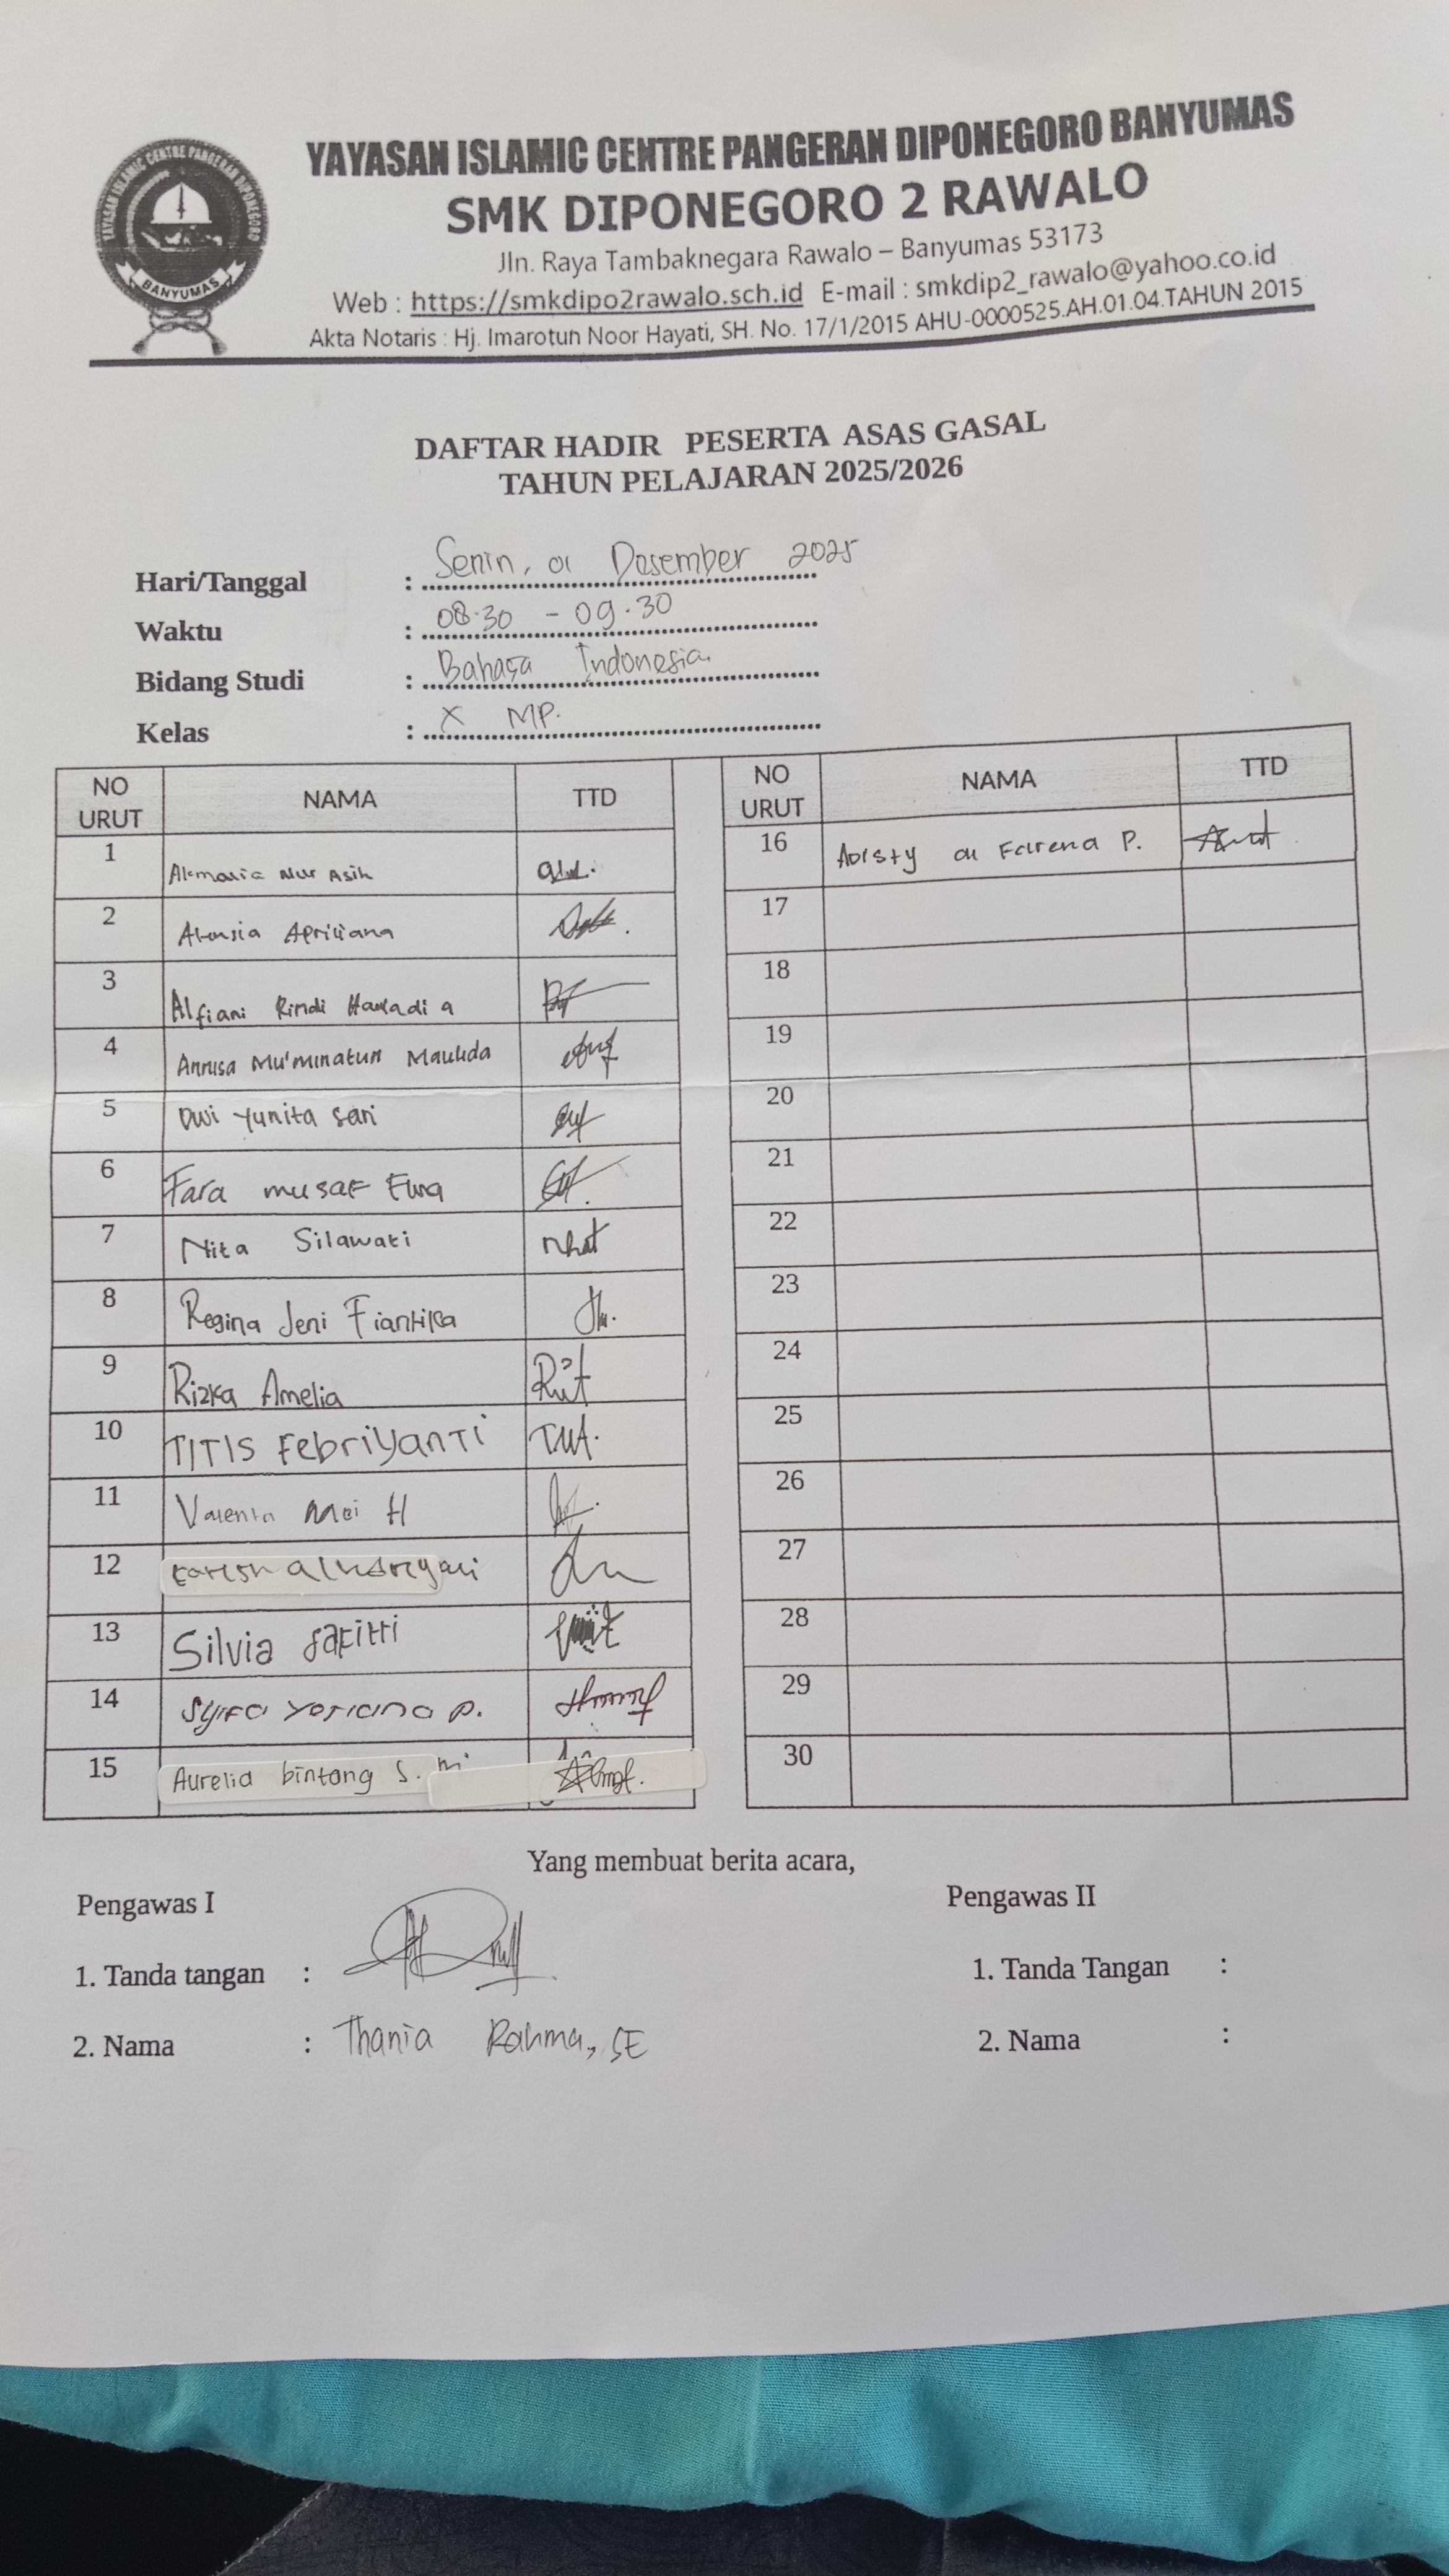 YAYASAN ISLAMIC CENTRE PANGERAN DIPONEGORO
BANYUMAS
YAYASAN ISLAMIC CENTRE PANGERAN DIPONEGORO BANYUMAS
SMK DIPONEGORO 2 RAWALO
Jln. Raya Tambaknegara Rawalo – Banyumas 53173
Web : https://smkdipo2rawalo.sch.id E-mail : smkdip2_rawalo@yahoo.co.id
Akta Notaris : Hj. Imarotun Noor Hayati, SH. No. 17/1/2015 AHU-0000525.AH.01.04.TAHUN 2015
DAFTAR HADIR PESERTA ASAS GASAL
TAHUN PELAJARAN 2025/2026
Hari/Tanggal : Senin, 01 Desember 2025
Waktu : 08.30 - 09.30
Bidang Studi : Bahasa Indonesia
Kelas : X MP.
NO URUT NAMA TTD
1 Nur Asih
2 Apriliana
3 Alfiani Rindi
4 Annisa Mu'minatun Maulida
5 Dwi Yunita Sari
6 Fara musaf
7 Nita Silawati
8 Regina Jeni Fiantika
9 Rizka Amelia
10 TITIS FebriyanTi
11 Mei H
12
13 Silvia Safitri
14 Syifa P.
15 Aurelia bintang S.
NO URUT NAMA TTD
16 Farena P.
17
18
19
20
21
22
23
24
25
26
27
28
29
30
Yang membuat berita acara,
Pengawas I
1. Tanda tangan :
2. Nama : Thania Rahma, SE
Pengawas II
1. Tanda Tangan :
2. Nama :